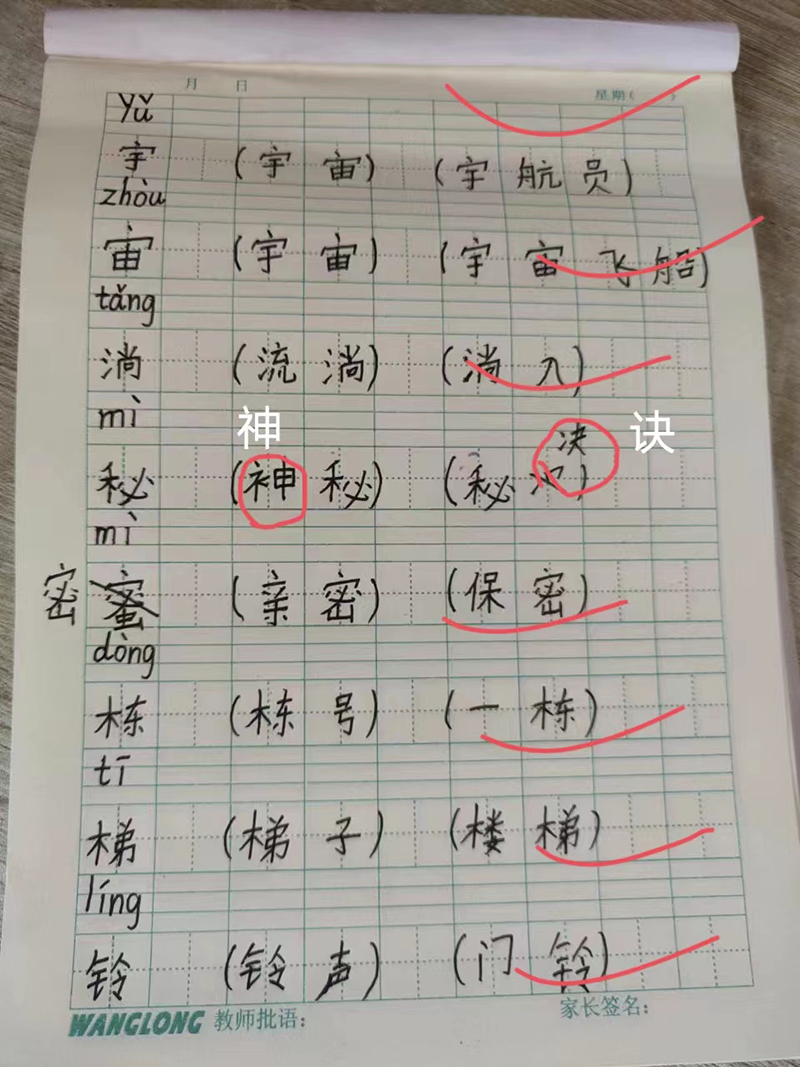 月 日 星期( )
yǔ
宇 (宇宙) (宇航员)
zhòu
宙 (宇宙) (宇宙飞船)
tǎng
淌 (流淌) (淌入)
mì
神 决 诀
秘 (神秘) (秘 )
mì
密 蜜 (亲密) (保密)
dòng
栋 (栋号) (一栋)
tī
梯 (梯子) (楼梯)
líng
铃 (铃声) (门铃)
WANGLONG 教师批语: 家长签名: